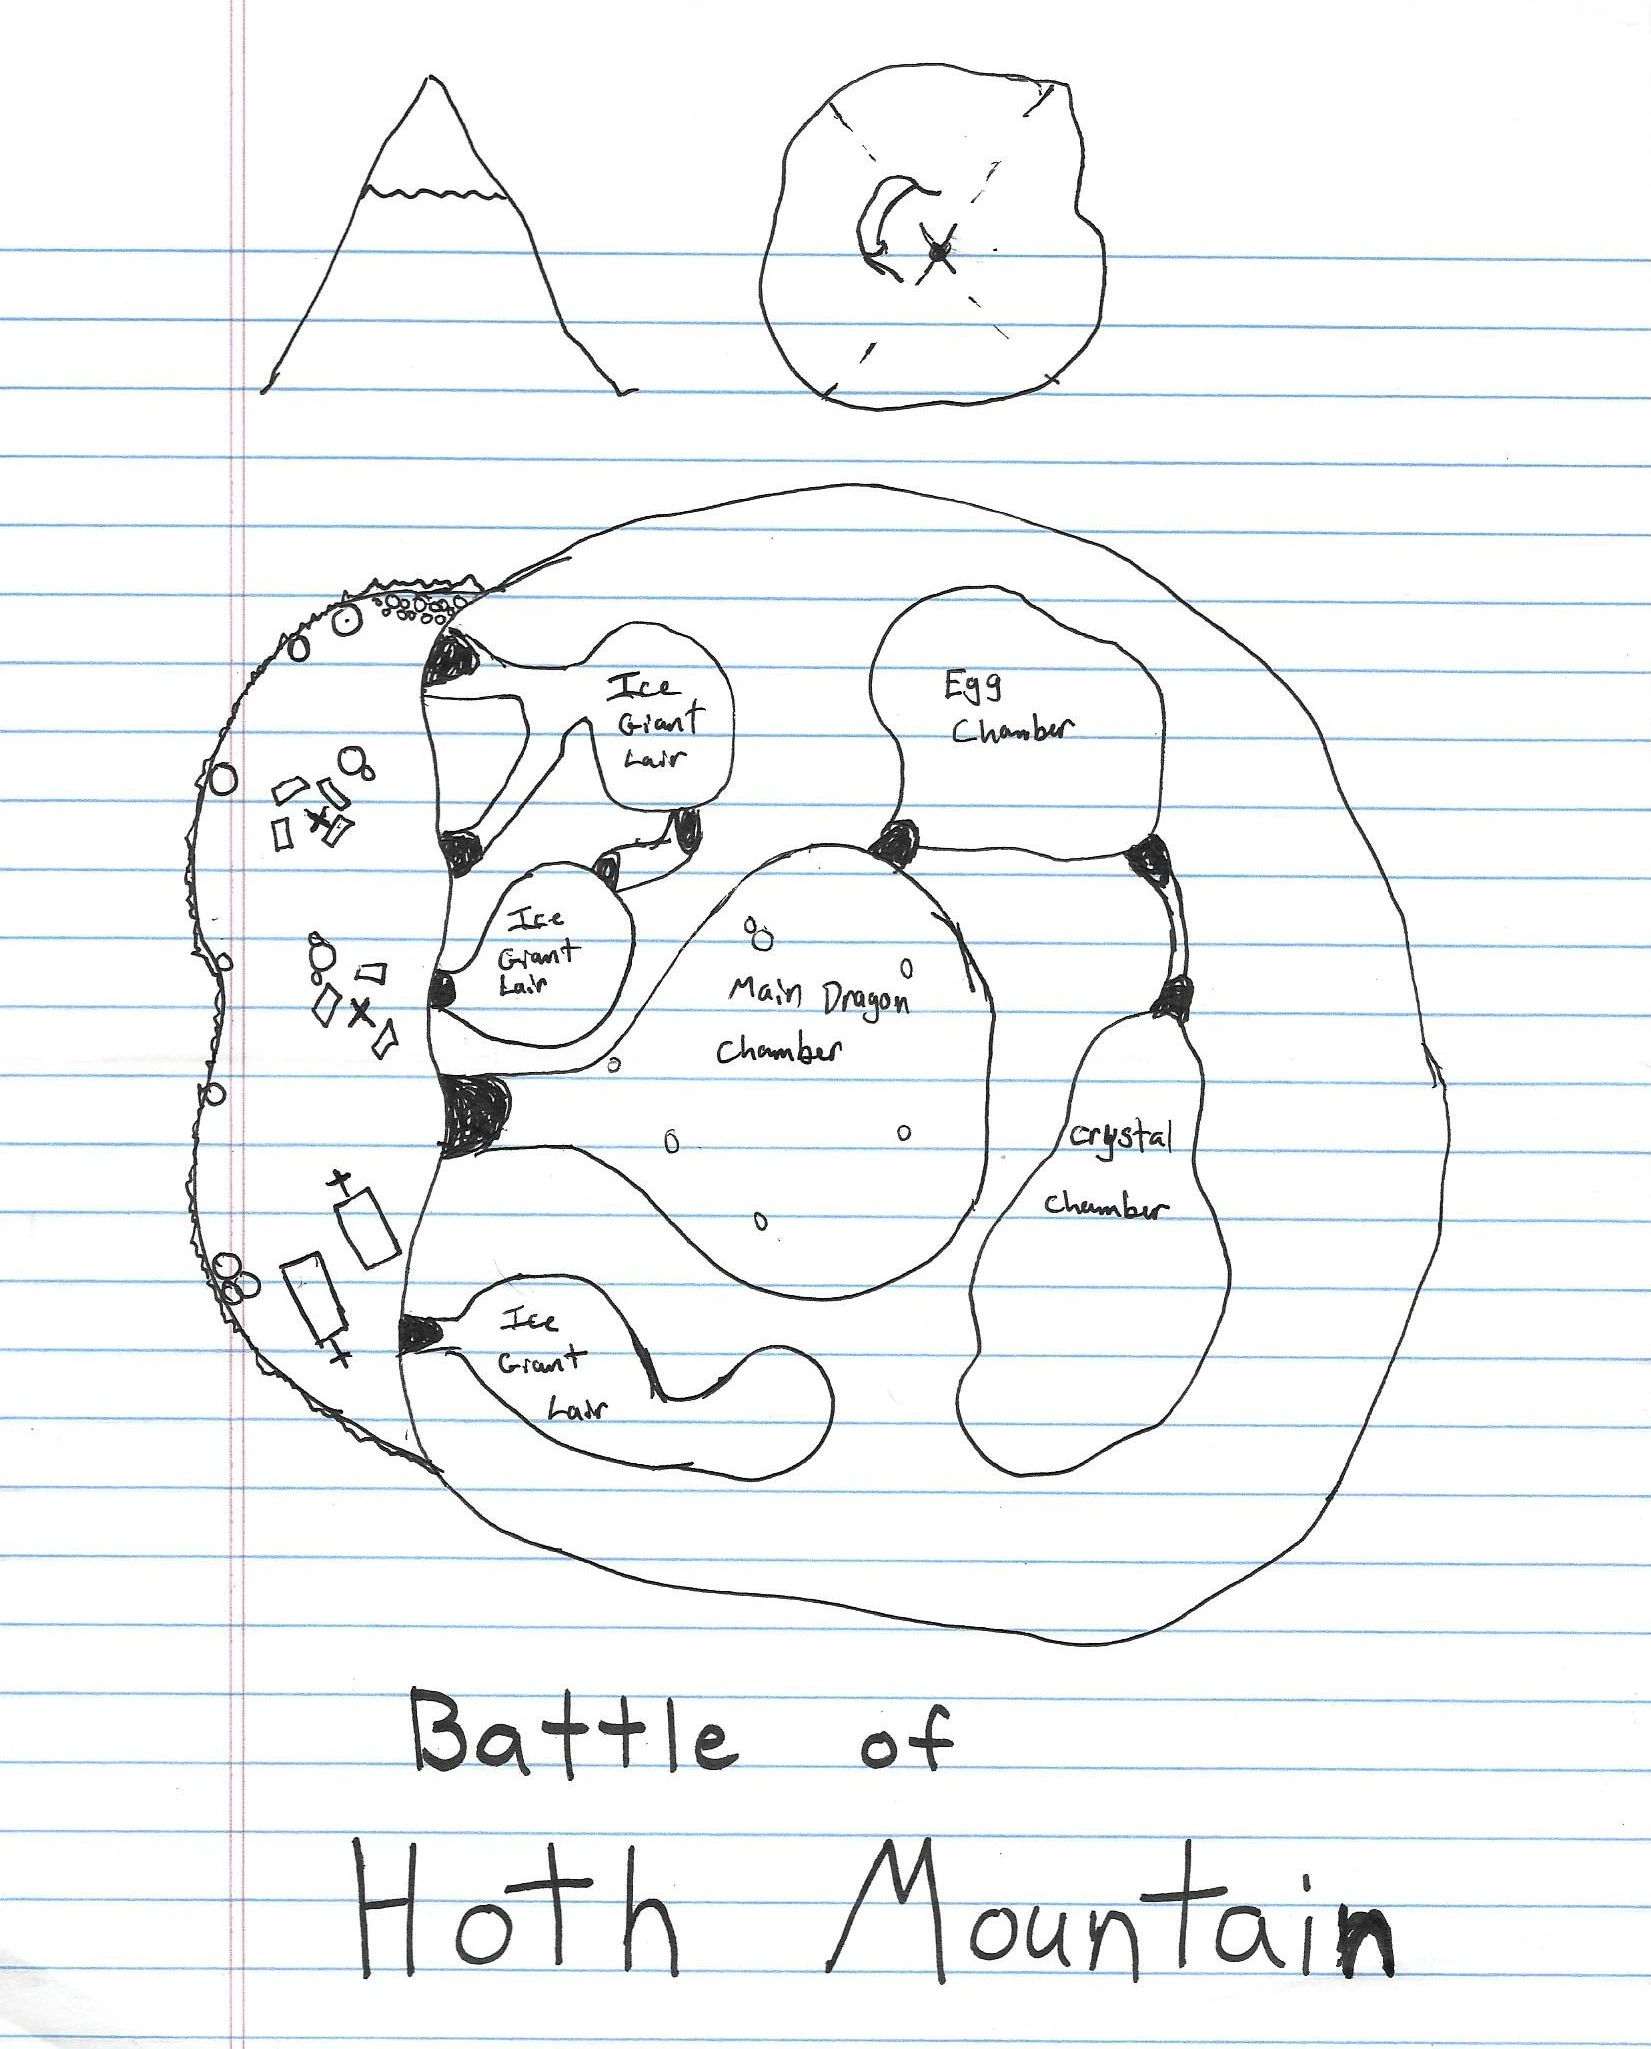 Ice
Giant
Lair
Egg
Chamber
Ice
Giant
Lair
Main Dragon
Chamber
Crystal
Chamber
Ice
Giant
Lair
Battle of
Hoth Mountain